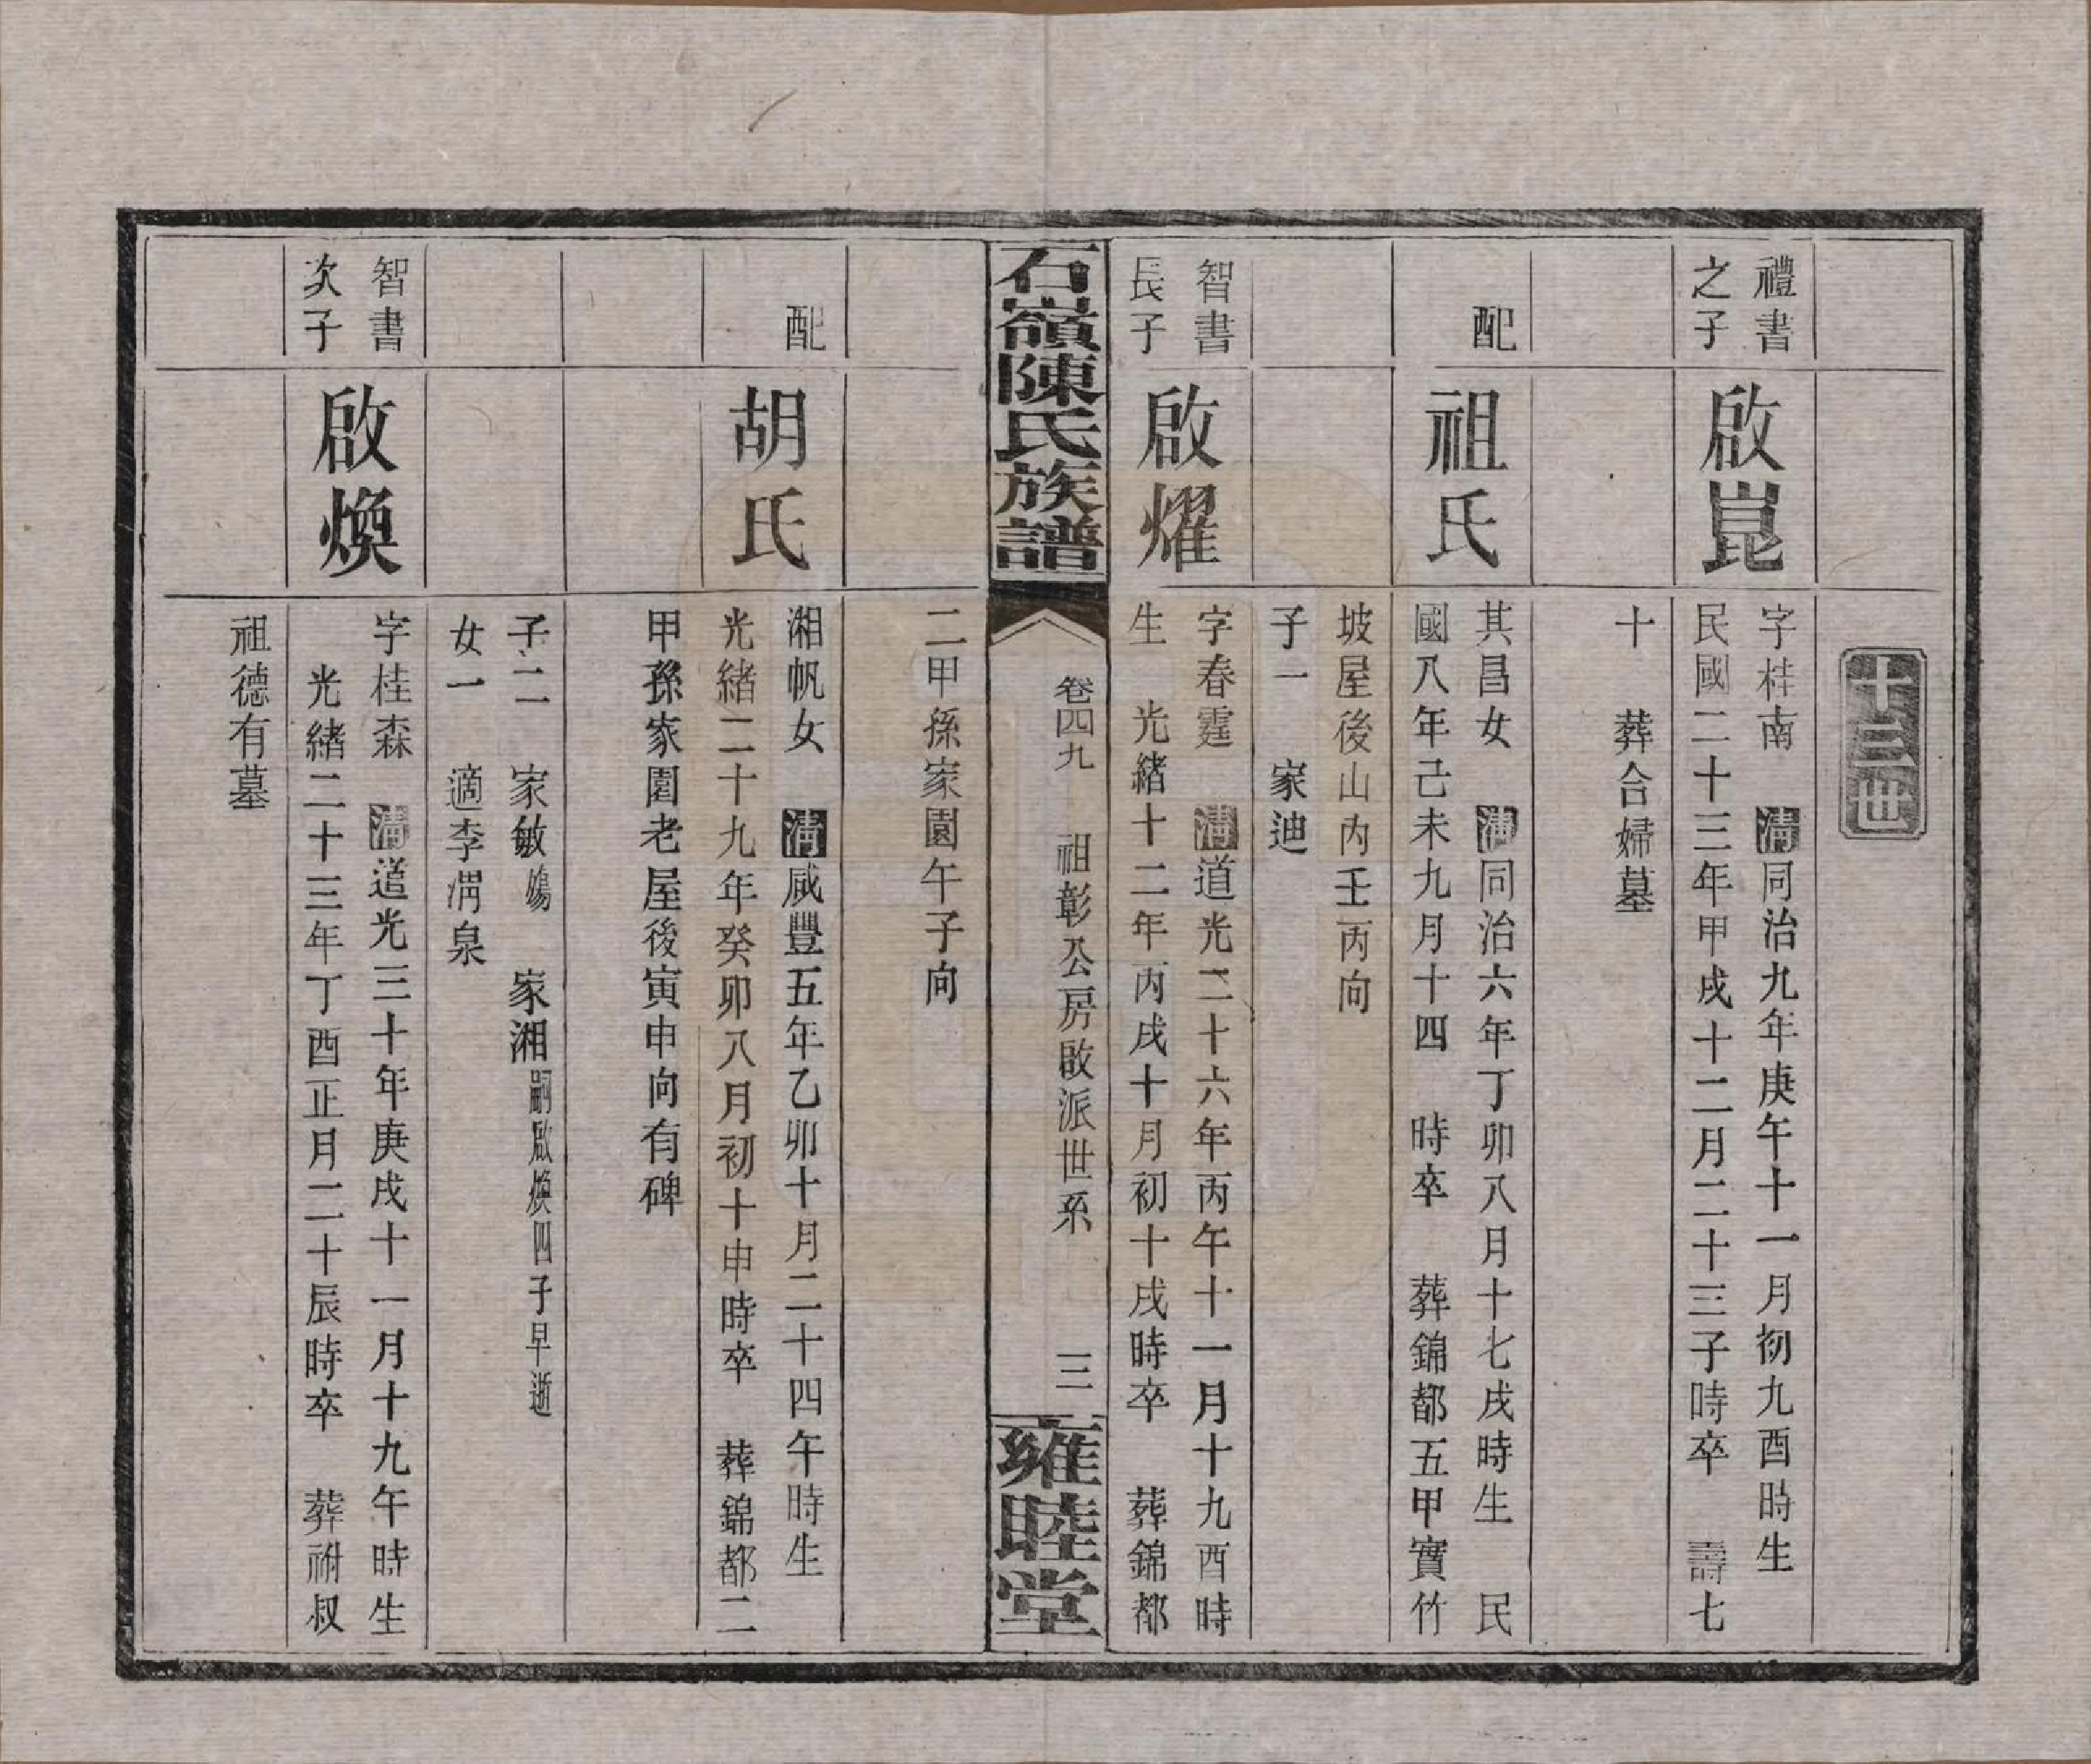 十三世
禮書
之子
啟崑
字桂南　清同治九年庚午十一月初九酉時生
民國二十三年甲戌十二月二十三子時卒　壽七
十　葬合婦墓
配
祖氏
其昌女　清同治六年丁卯八月十七戌時生　民
國八年己未九月十四　時卒　葬錦都五甲寶竹
坡屋後山內壬丙向
子一　家迪
智書
長子
啟燿
字春霆　清道光二十六年丙午十一月十九酉時
生　光緒十二年丙戌十月初十戌時卒　葬錦都
二甲孫家園午子向
石嶺陳氏族譜
卷四九　祖彰公房啟派世系　三
雍睦堂
配
胡氏
湘帆女　清咸豐五年乙卯十月二十四午時生
光緒二十九年癸卯八月初十申時卒　葬錦都二
甲孫家園老屋後寅申向有碑
子二　家敏殤　家湘嗣啟煥四子早逝
女一　適李渭泉
智書
次子
啟煥
字桂森　清道光三十年庚戌十一月十九午時生
光緒二十三年丁酉正月二十辰時卒　葬祔叔
祖德有墓